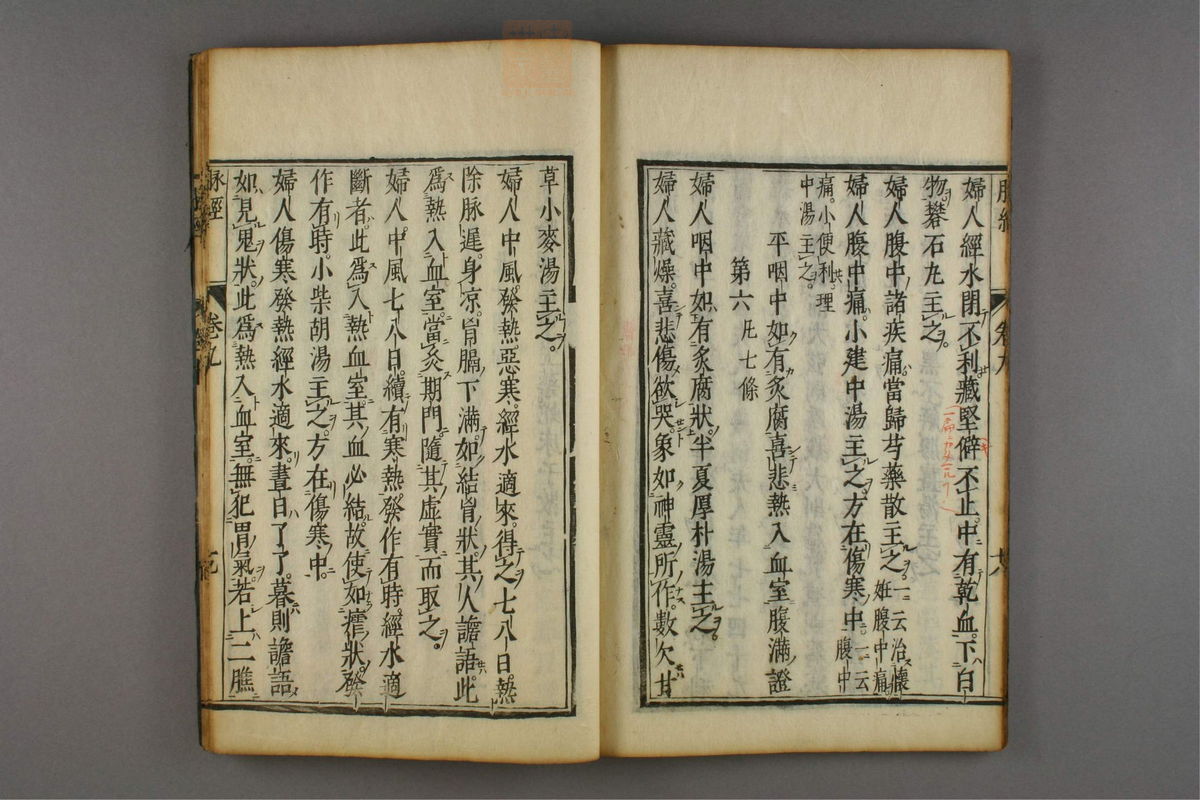 婦人經水閉不利藏堅僻不止中有乾血下白
物礬石丸主之
婦人腹中諸疾痛當歸芍藥散主之一云治懷
姙腹中痛
婦人腹中痛小建中湯主之方在傷寒中一云
腹中
痛小便利理
中湯主之
平咽中如有炙腐喜悲熱入血室腹滿證
第六 凡七條
婦人咽中如有炙腐狀半夏厚朴湯主之
婦人藏燥喜悲傷欲哭象如神靈所作數欠甘
草小麥湯主之
婦人中風發熱惡寒經水適來得之七八日熱
除脉遲身凉胷膈下滿如結胷狀其人譫語此
爲熱入血室當灸期門隨其虛實而取之
婦人中風七八日續有寒熱發作有時經水適
斷者此爲入熱血室其血必結故使如瘧狀發
作有時小柴胡湯主之方在傷寒中
婦人傷寒發熱經水適來晝日了了暮則譫語
如見鬼狀此爲熱入血室無犯胃氣若上二膲
脉經
卷九